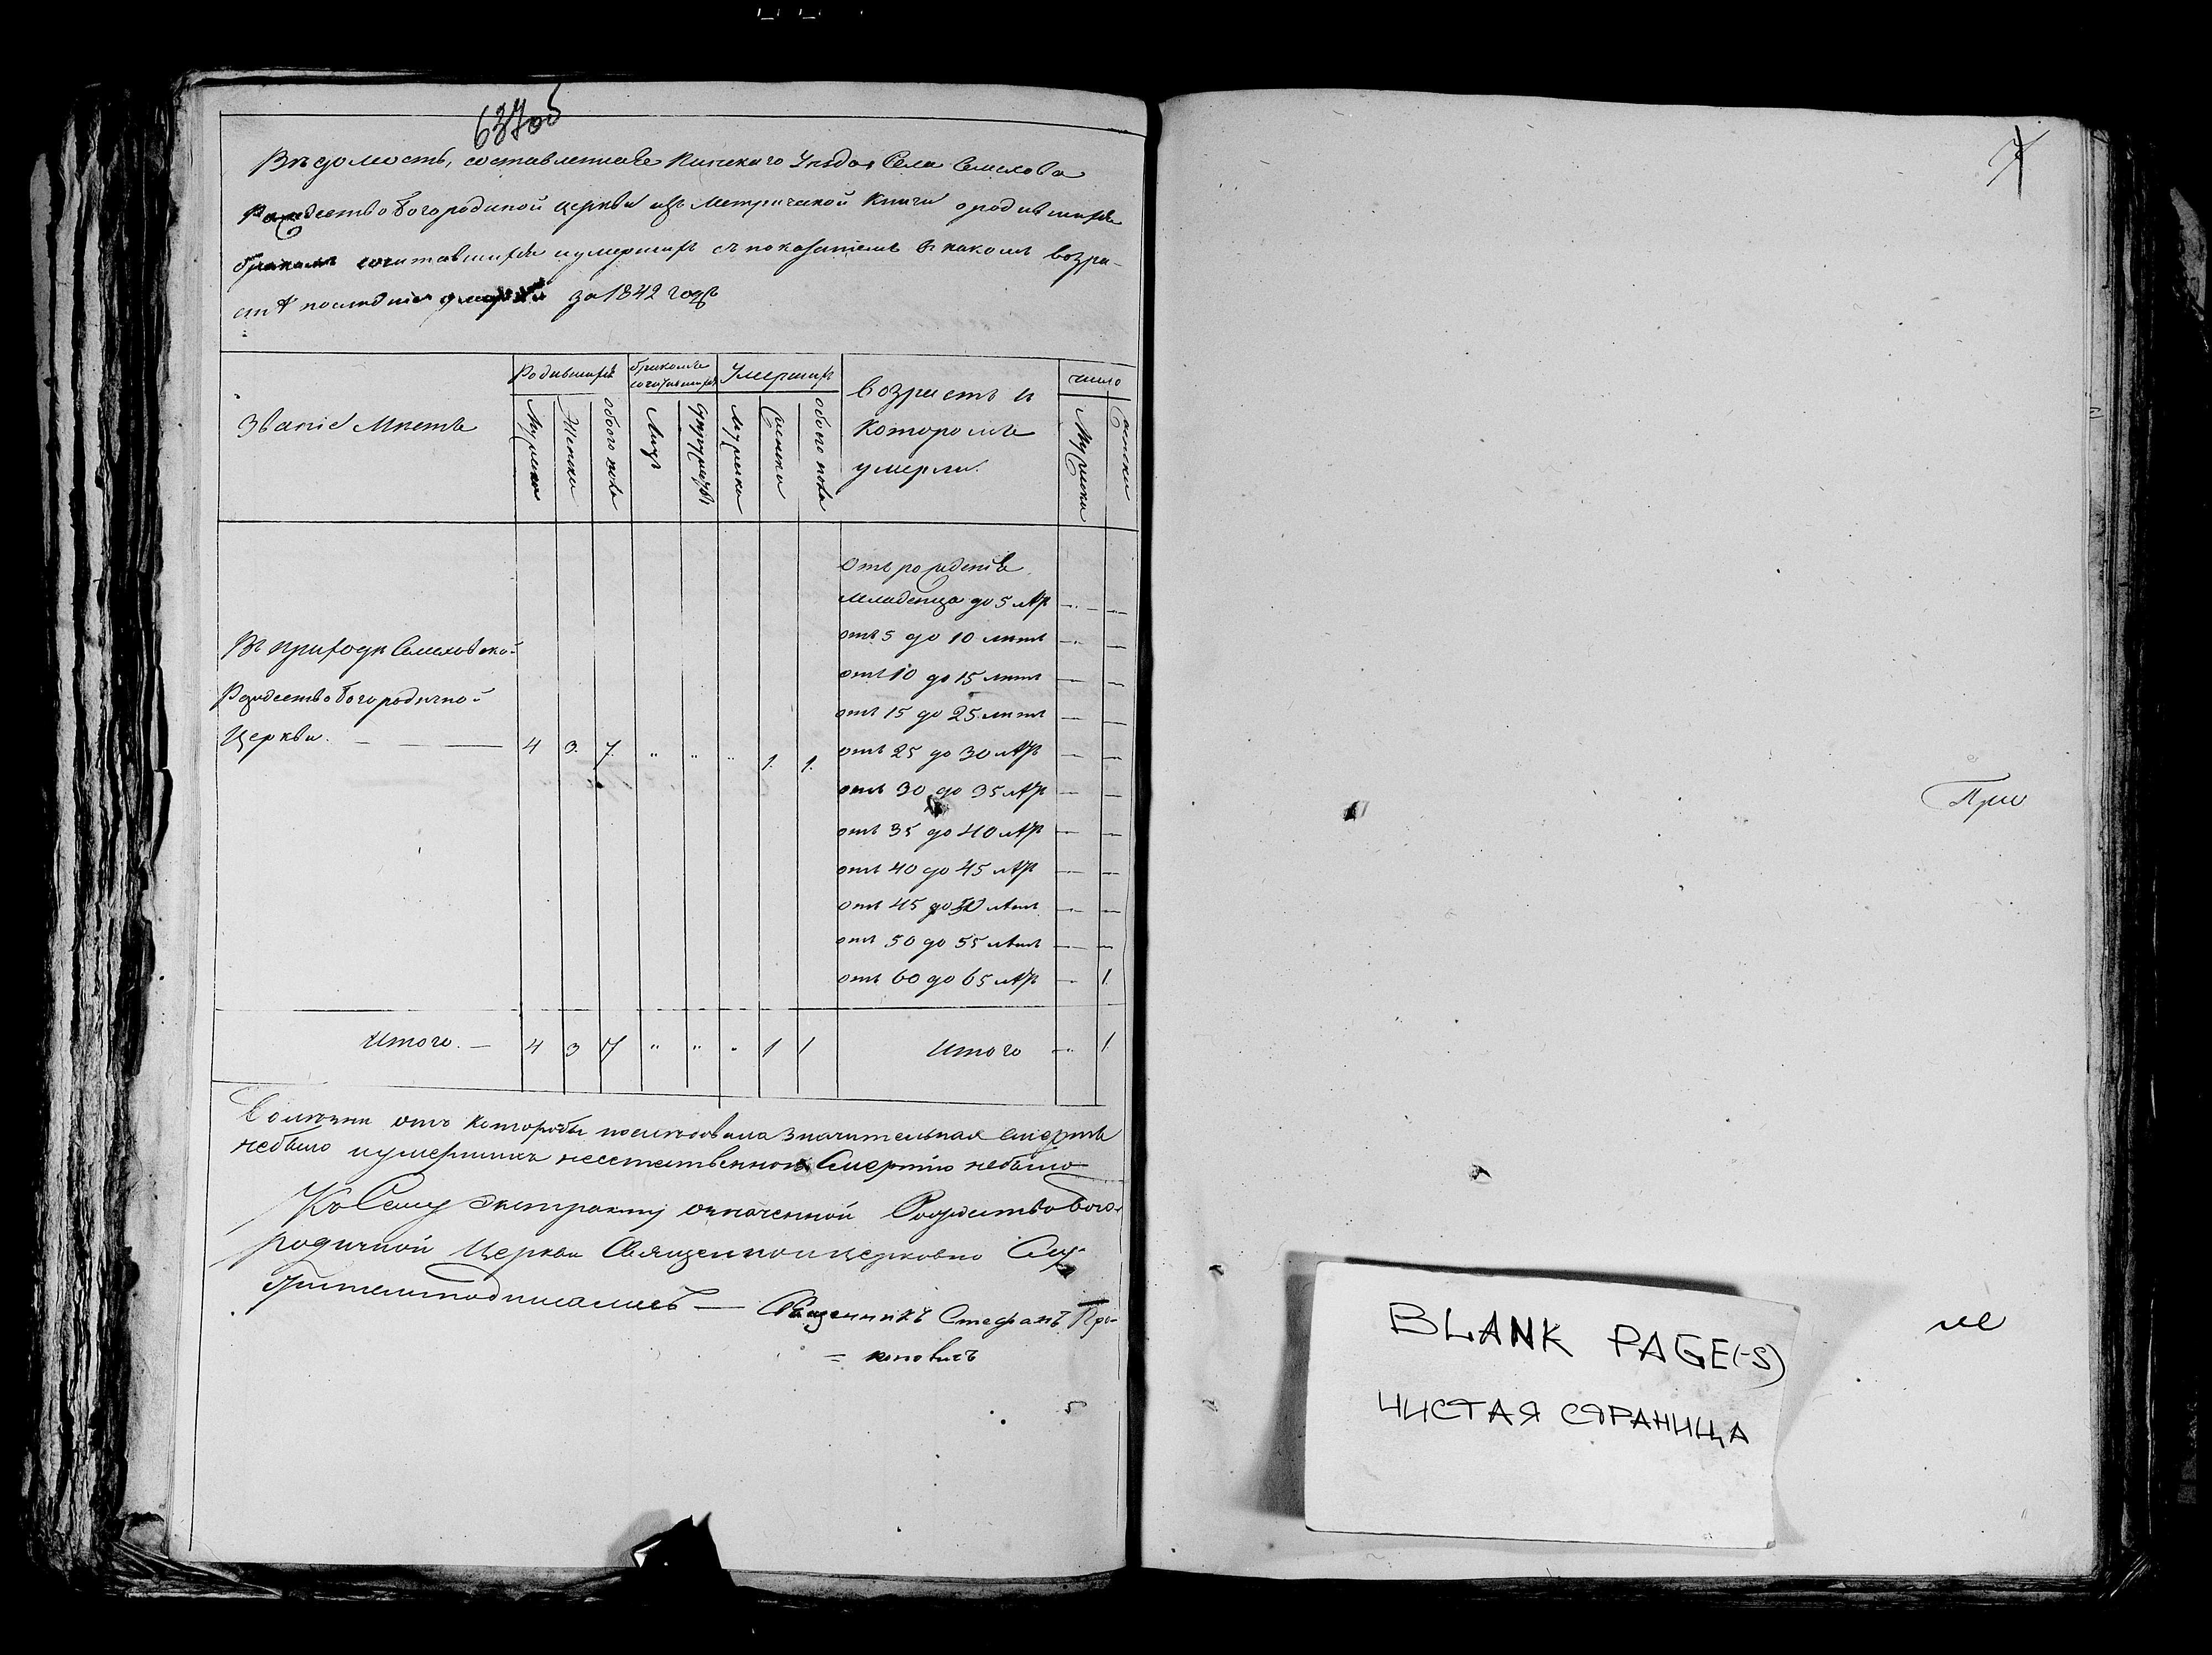 637об
Вѣдомость, составленная Пинскаго Уѣзда Села Семехова
Рождествобогородичной церкви изъ Метрической книги о родившихся
бракомъ сочитавшихся и умершихъ съ показаніемъ въ какомъ возра-
стѣ последніе умерли за 1842 годъ
Званіе Мѣстъ
Родившихся
бракомъ сочитавшихся
Умершихъ
возрастъ в
которомъ
умерли.
число
Мужеска
Женска
обоего пола
Лицъ
Супружествъ
мужеска
женска
обоего пола
Мужеска
женска
Отъ рожденія
младенца до 5 лѣтъ — —
отъ 5 до 10 летъ — —
отъ 10 до 15 летъ — —
отъ 15 до 25 летъ — —
Въ приходѣ Семеховской
Рождествобогородичной
Церкви. — — 4 3. 7. " " " 1. 1.
отъ 25 до 30 лѣтъ — —
отъ 30 до 35 лѣтъ — —
отъ 35 до 40 лѣтъ — —
отъ 40 до 45 лѣтъ — —
отъ 45 до 50 лѣтъ — —
отъ 50 до 55 лѣтъ — —
отъ 60 до 65 лѣтъ — 1.
Итого. — 4 3 7 " " " 1 1 Итого — 1.
болѣзни отъ которой бы последовала значительная смерть
небыло и умершихъ неестественною Смертію небыло
Ко Сему Экстракту означенной Рождество бого-
родичной Церкви Священно и церковно Слу-
жители подписались — Священникъ Стефанъ Про-
= коповичъ
7
При
ле
BLANK PAGE(-S)
ЧИСТАЯ СТРАНИЦА